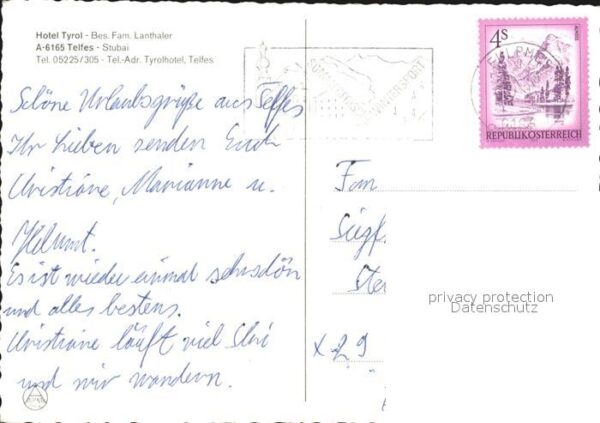 Hotel Tyrol - Bes. Fam. Lanthaler
A-6165 Telfes - Stubai
Tel. 05225/305 - Tel.-Adr. Tyrolhotel, Telfes
Schöne Urlaubsgrüße aus Telfes
Ihr Lieben senden Euch
Christiane, Marianne u.
Helmut.
Es ist wieder einmal sehr schön
und alles bestens.
Christiane läuft viel Ski
und wir wandern.
WINTERSPORT
4 S
REPUBLIK ÖSTERREICH
Fam
Siegf
Ste
X 29
privacy protection
Datenschutz